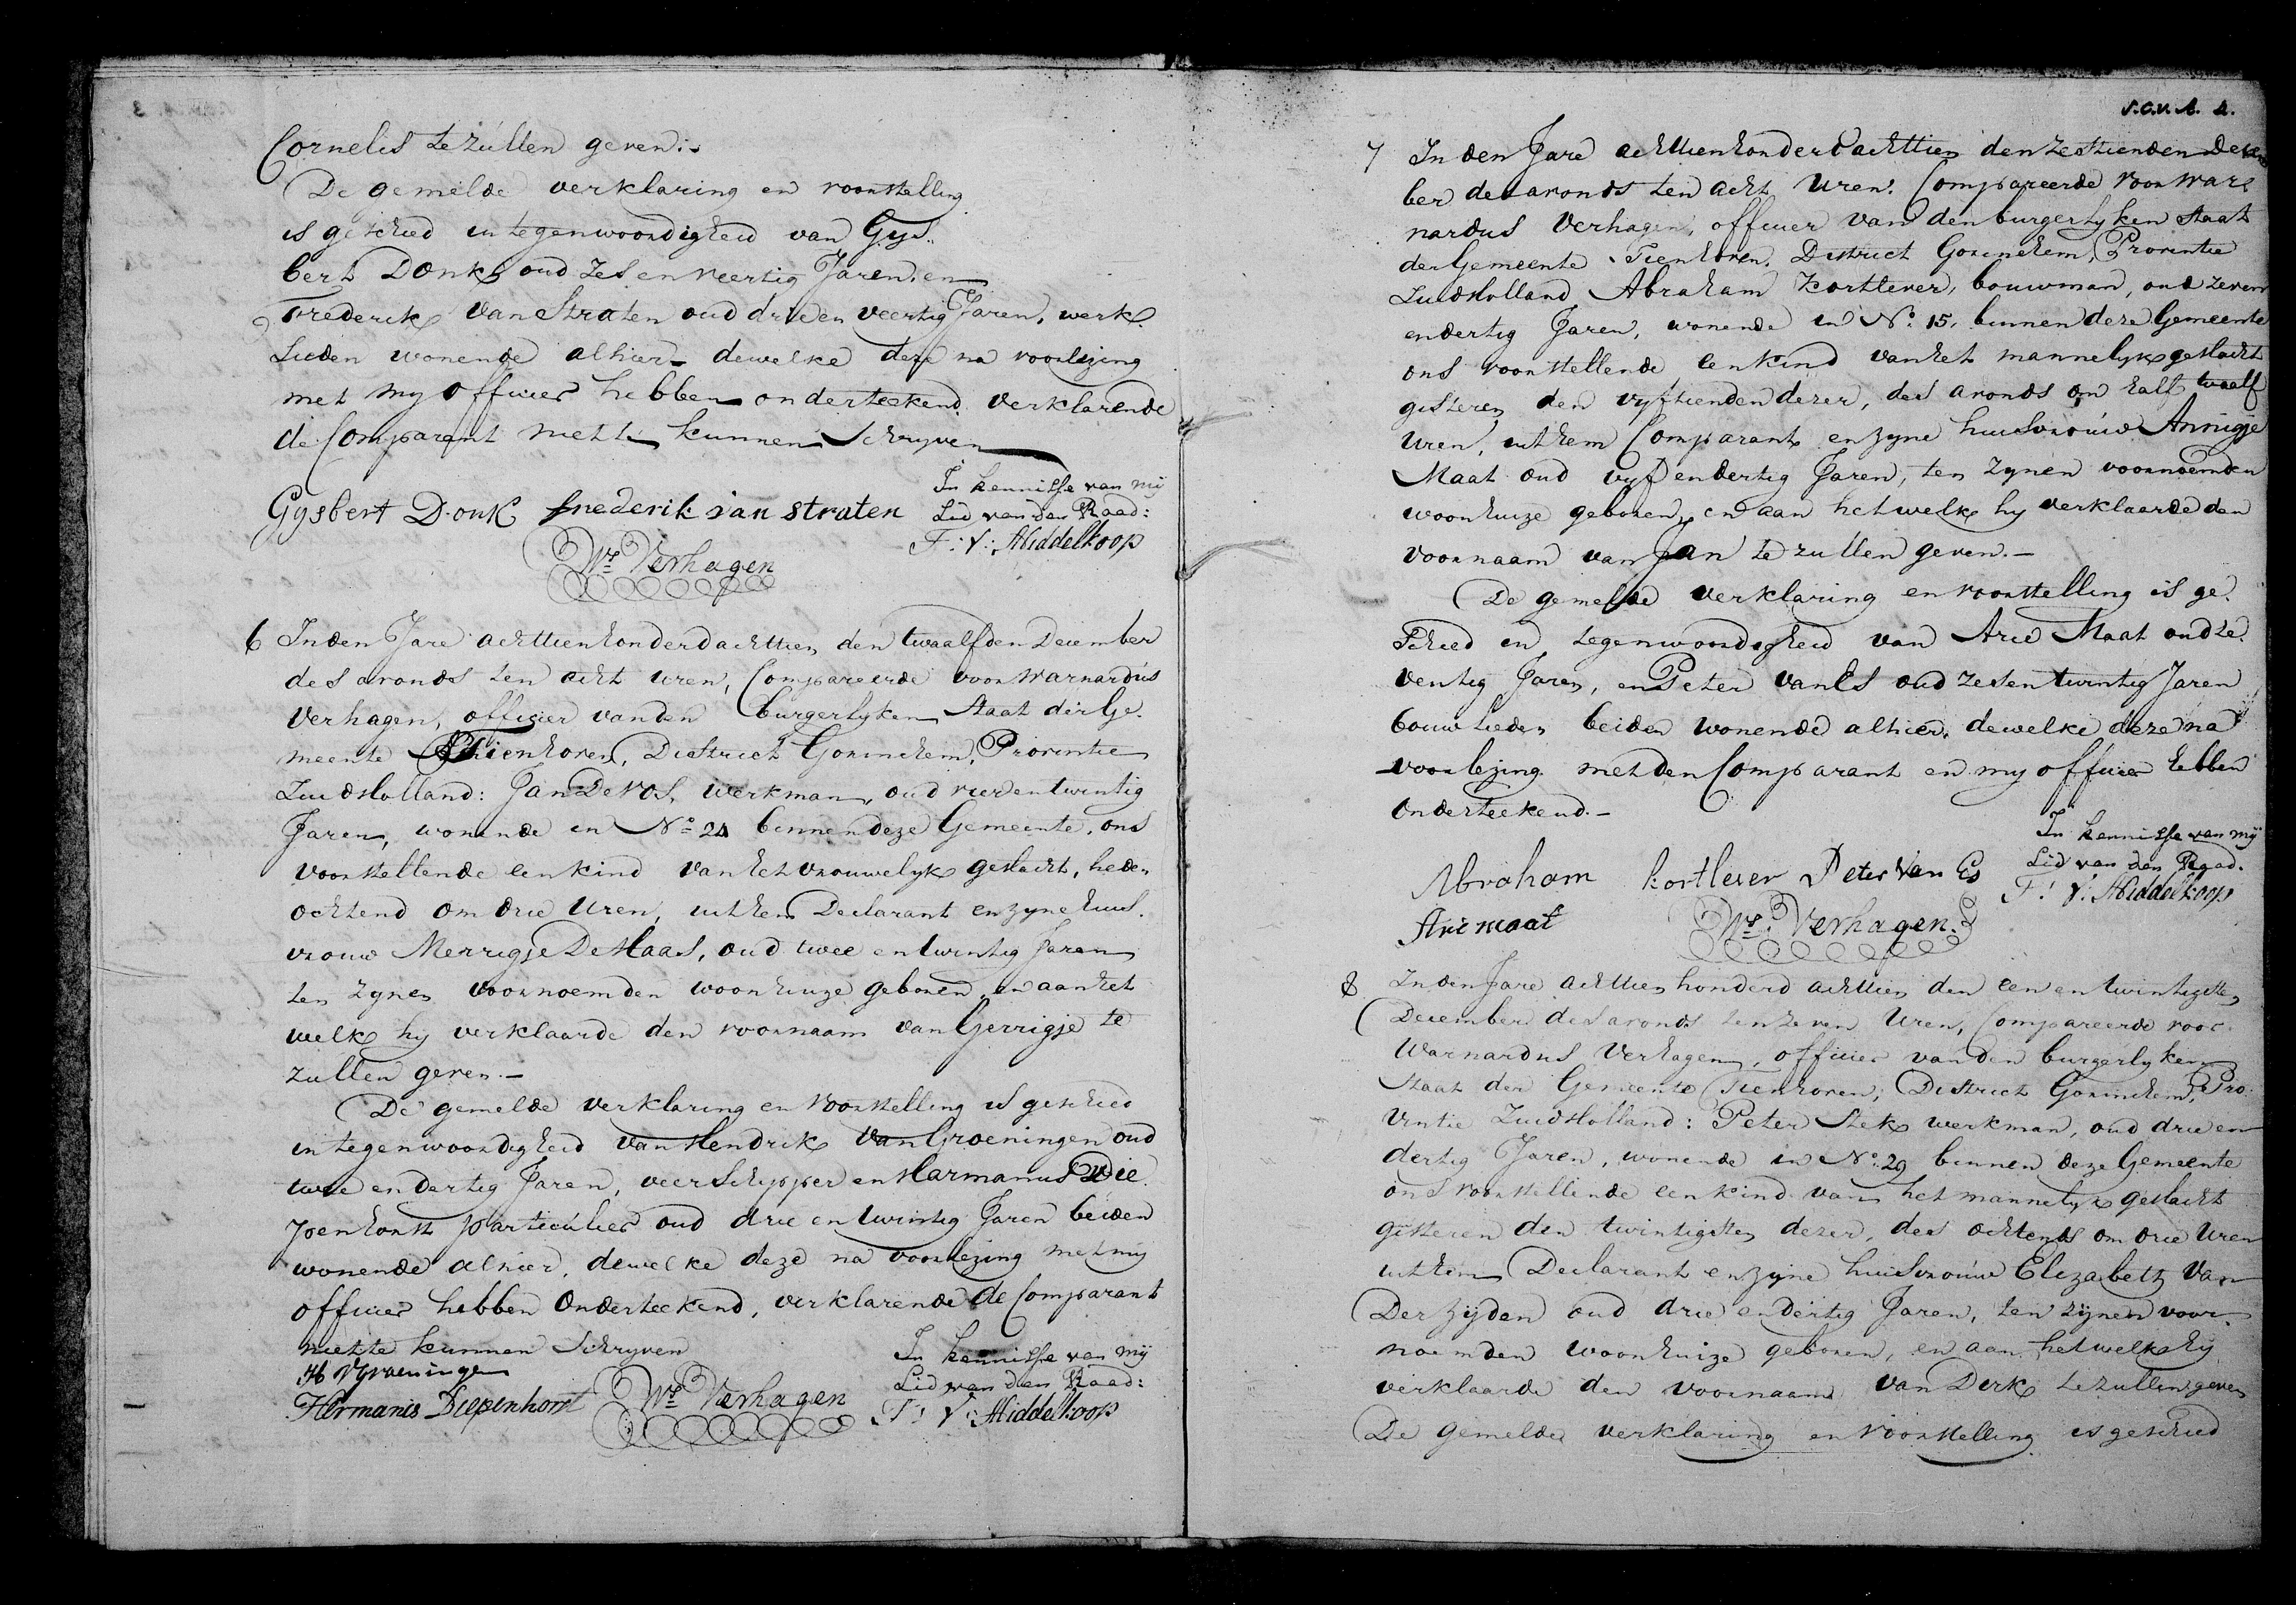 Cornelis te zullen geven:-
De gemelde verklaring en voorstelling
is geschied in tegenwoordigheid van Gys„
bert Donk oud Zes en veertig Jaren. en
Frederik van Straten oud drie en veertig Jaren, werk„
Lieden wonende alhier - dewelke deze na voorlezing
met my officier hebben onderteekend. verklarende
de Comparant niet te kunnen Schryven
In kennisse van mij
Gysbert Donk frederik van straten Lid van den Raad:
F: V: Middelkoop
Ws. Verhagen
6 In den Jare achttienhonderdachttien den twaalfden December
des avonds ten acht uren, Compareerde voor Warnardus
Verhagen, officier van den burgerlyken Staat der Ge„
meente Tienhoven, District Gorinchem, Provintie
Zuid Holland: Jan De Vos, werkman, oud vier en twintig
Jaren, wonende in No. 24 binnen deze Gemeente, ons
voorstellende een kind van het vrouwelyk geslacht, heden
ochtend om drie Uren, uit hem Declarant en zyne huis„
vrouw Merrigje De Haas, oud twee en twintig Jaren
ten zynen voornoemden woonhuize geboren en aan het
welk hy verklaarde den voornaam van Gerrigje te
zullen geven.-
De gemelde verklaring en voorstelling is geschied
in tegenwoordigheid van Hendrik Van Groeningen oud
twee en dertig Jaren, veerschipper en Harmanus Die„
penhorst particulier oud drie en twintig Jaren beiden
wonende alhier. dewelke deze na voorlezing met my
officier hebben Onderteekend, verklarende de Comparant
niet te kunnen Schryven
In kennisse van mij
H V groeningen Lid van den Raad:
Hermanis Diepenhorst Ws. Verhagen F: V: Middelkoop
S.C.v.A. 4.
7 In den Jare achttienhonderdachttien den Zestienden Decem
ber des avonds ten acht Uren. Compareerde voor War„
nardus Verhagen, officier van den burgerlyken Staat
der Gemeente Tienhoven, District Gorinchem, Provintie
Zuid Holland Abraham Kortlever, bouwman, oud zeven
en dertig Jaren, wonende in No. 15. binnen deze Gemeente
ons voorstellende een kind van het mannelyk geslacht
gisteren den vyftienden dezer, des avonds om half twaalf
Uren, uit hem Comparant en zyne huisvrouw Annigje
Maat oud vyf en dertig Jaren, ten zynen voornoemden
woonhuize geboren, en aan hetwelk hy verklaarde den
voornaam van Jan te zullen geven.-
De gemelde verklaring en voorstelling is ge„
schied in tegenwoordigheid van Arie Maat oud ze„
ventig Jaren, en Peter van Es oud zes en twintig Jaren
bouwlieden beiden wonende alhier. dewelke deze na
voorlezing met den Comparant en my officier hebben
Onderteekend.-
In kennisse van mij
Lid van den Raad.
Abraham kortlever Peter Van Es F: V: Middelkoop
Arie maat Ws. Verhagen.
8 In den Jare achttien honderd achttien den een en twintigsten
December des avonds ten zeven Uren, Compareerde voor
Warnardus Verhagen, officier van den burgerlyken
Staat der Gemeente Tienhoven, District Gorinchem, Pro„
vintie Zuid Holland: Peter Stek werkman, oud drie en
dertig Jaren, wonende in No. 29 binnen deze Gemeente
ons voorstellende een kind van het mannelyk geslacht
gisteren den twintigsten dezer, des ochtends om drie Uren
uit hem Declarant en zyne huisvrouw Elizabeth Van
Der Zijden oud drie en dertig Jaren, ten zijnen voor„
noemden woonhuize geboren, en aan hetwelk hy
verklaarde den voornaam van Dirk te zullen geven
De gemelde verklaring en voorstelling is geschied